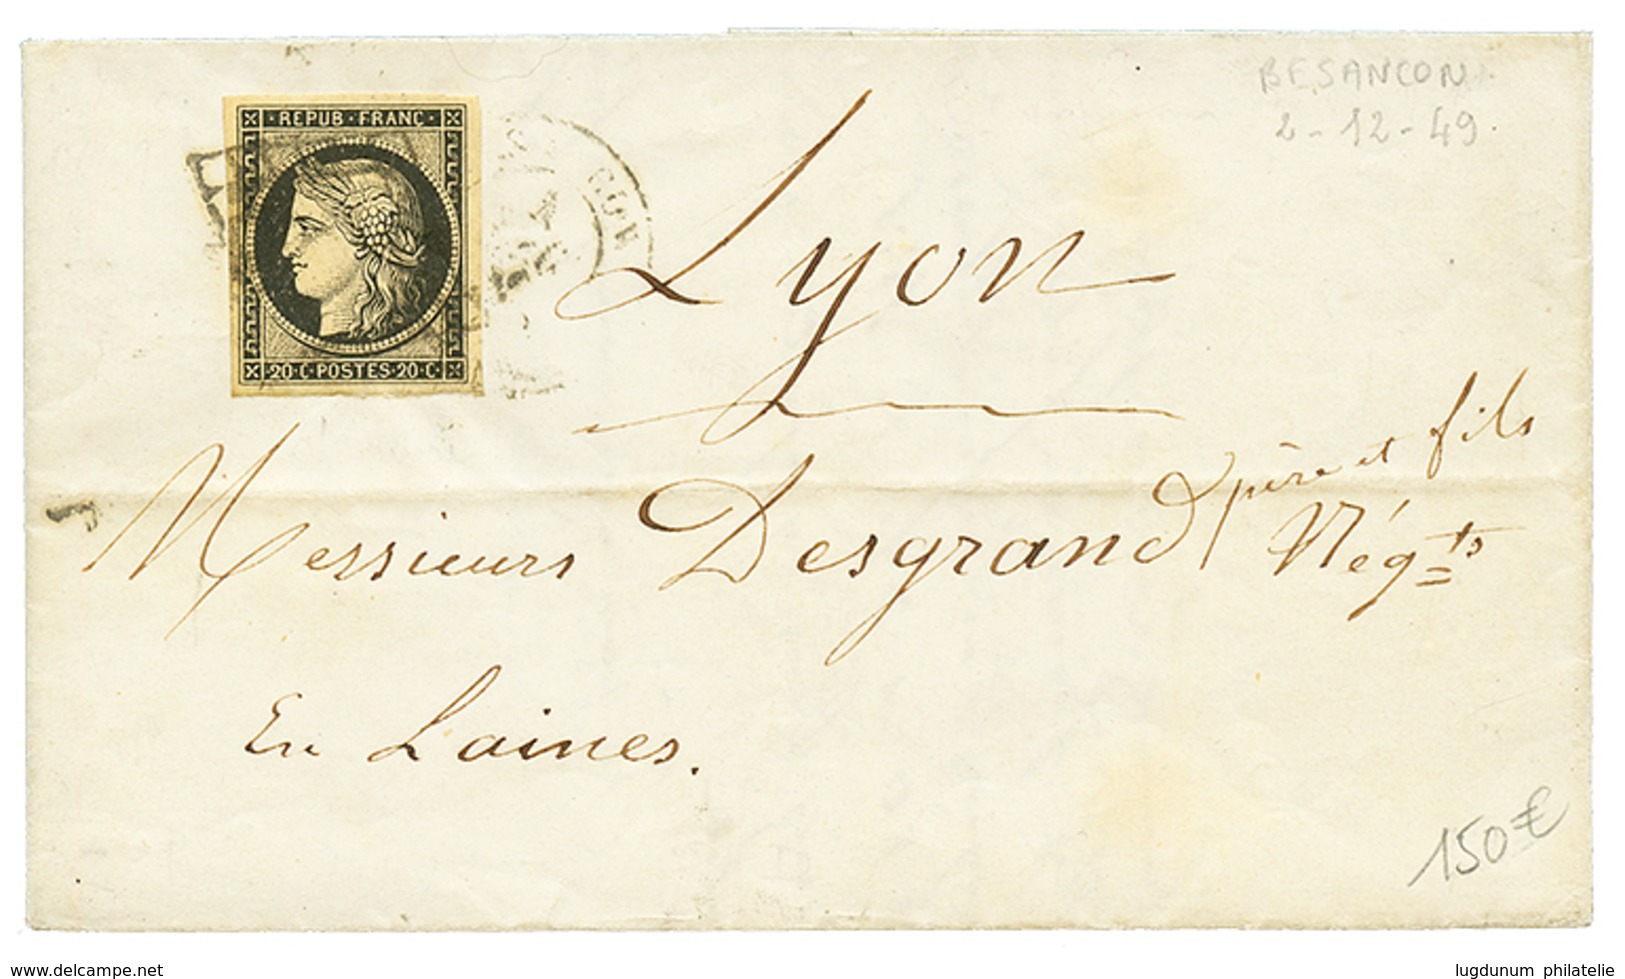 BESANCON
2-12-49.
REPUB · FRANC
20·C·POSTES·20·C
Lyon
Messieurs Desgrand père et fils Nég.ts
En Laines.
150€
www.delcampe.net
lugdunum philatelie